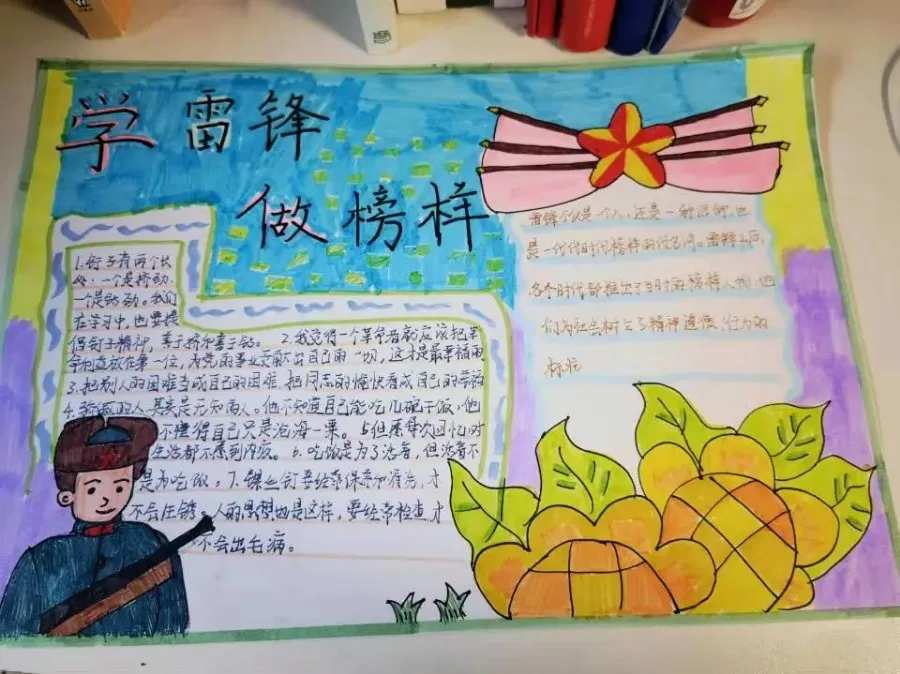 学雷锋
做榜样
1.钉子有两个长
处：一个是挤劲，
一个是钻劲。我们
在学习中，也要提
倡钉子精神，善于挤和善于钻。 2.我觉得一个革命者就应该把革
命利益放在第一位，为党的事业贡献出自己的一切，这才是最幸福的
3.把别人的困难当成自己的困难，把同志的愉快看成自己的幸福
4.骄傲的人，其实是无知的人。他不知道自己能吃几碗干饭，他
不懂得自己只是沧海一粟。 5.但愿每次回忆，对
生活都不感到内疚。 6.吃饭是为了活着，但活着不
是为吃饭。7.螺丝钉要经常保养和清洗，才
不会生锈。人的思想也是这样，要经常检查，才
不会出毛病。
雷锋不仅是一个人，还是一种精神，也
是一代代时代榜样的代名词。雷锋之后，
各个时代都推出了当时的榜样人物，他
们为社会树立了精神道德、行为的
标杆